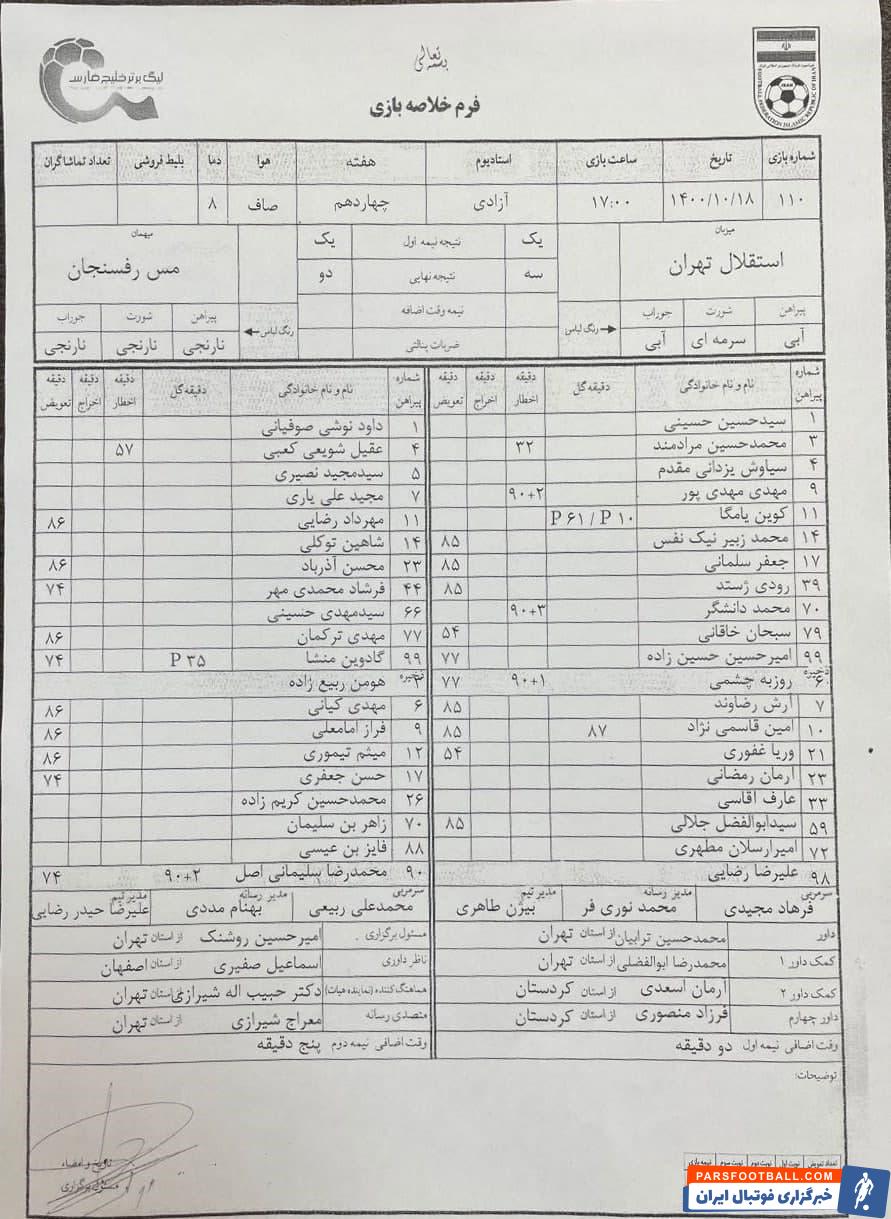 بسمه تعالی
لیگ برتر خلیج فارس
فرم خلاصه بازی
شماره بازی تاریخ ساعت بازی استادیوم هفته هوا دما بلیط فروشی تعداد تماشاگران
۱۱۰ ۱۴۰۰/۱۰/۱۸ ۱۷:۰۰ آزادی چهاردهم صاف ۸
میزبان میهمان
استقلال تهران یک نتیجه نیمه اول یک مس رفسنجان
سه نتیجه نهایی دو
نیمه وقت اضافه
ضربات پنالتی
پیراهن شورت جوراب رنگ لباس پیراهن شورت جوراب رنگ لباس
آبی سرمه ای آبی نارنجی نارنجی نارنجی
شماره پیراهن نام و نام خانوادگی دقیقه گل دقیقه اخطار دقیقه اخراج دقیقه تعویض
۱ سیدحسین حسینی
۳ محمدحسین مرادمند ۳۲
۴ سیاوش یزدانی مقدم
۹ مهدی مهدی پور ۹۰+۲
۱۱ کوین یامگا P ۶۱ / P ۱۰
۱۴ محمد زبیر نیک نفس ۸۵
۱۷ جعفر سلمانی ۸۵
۳۹ رودی ژستد ۸۵
۷۰ محمد دانشگر ۹۰+۳
۷۹ سبحان خاقانی ۵۴
۹۹ امیرحسین حسین زاده ۷۷
ذخیره
۶ روزبه چشمی ۹۰+۱ ۷۷
۷ آرش رضاوند ۸۵
۱۰ امین قاسمی نژاد ۸۷ ۸۵
۲۱ وریا غفوری ۵۴
۲۳ آرمان رمضانی
۳۳ عارف آقاسی
۵۹ سیدابوالفضل جلالی ۸۵
۷۲ امیرارسلان مطهری
۹۸ علیرضا رضایی
شماره پیراهن نام و نام خانوادگی دقیقه گل دقیقه اخطار دقیقه اخراج دقیقه تعویض
۱ داود نوشی صوفیانی
۴ عقیل شویعی کعبی ۵۷
۵ سیدمجید نصیری
۷ مجید علی یاری
۱۱ مهرداد رضایی ۸۶
۱۴ شاهین توکلی
۲۳ محسن آذرباد ۸۶
۴۴ فرشاد محمدی مهر ۷۴
۶۶ سیدمهدی حسینی
۷۷ مهدی ترکمان ۸۶
۹۹ گادوین منشا P ۳۵ ۷۴
ذخیره
هومن ربیع زاده
۶ مهدی کیانی ۸۶
۹ فراز امامعلی ۸۶
۱۲ میثم تیموری ۸۶
۱۷ حسن جعفری ۷۴
۲۶ محمدحسین کریم زاده
۷۰ زاهر بن سلیمان
۸۸ فایز بن عیسی
۹۰ محمدرضا سلیمانی اصل ۹۰+۲ ۷۴
سرمربی فرهاد مجیدی مدیر رسانه محمد نوری فر مدیر تیم بیژن طاهری
سرمربی محمدعلی ربیعی مدیر رسانه بهنام مددی مدیر تیم علیرضا حیدر رضایی
داور محمدحسین ترابیان از استان تهران
کمک داور ۱ محمدرضا ابوالفضلی از استان تهران
کمک داور ۲ آرمان اسعدی از استان کردستان
داور چهارم فرزاد منصوری از استان کردستان
وقت اضافی نیمه اول دو دقیقه
مسئول برگزاری امیرحسین روشنک از استان تهران
ناظر داوری اسماعیل صفیری از استان اصفهان
هماهنگ کننده (نماینده هیات) دکتر حبیب اله شیرازی از استان تهران
متصدی رسانه معراج شیرازی از استان تهران
وقت اضافی نیمه دوم پنج دقیقه
توضیحات:
تاریخ و امضاء
مسئول برگزاری
تعداد تعویض نوبت اول نوبت دوم نوبت سوم نیمه بازی
PARSFOOTBALL.COM
خبرگزاری فوتبال ایران